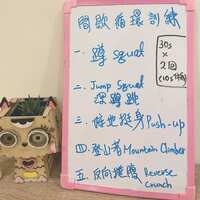 間歇循環訓練
一、蹲 squad
二、Jump Squad
深蹲跳
三、伏地挺身 Push-up
四、登山者 Mountain Climber
五、反向捲腹 Reverse
crunch
30s
x
2回
(10s休息)